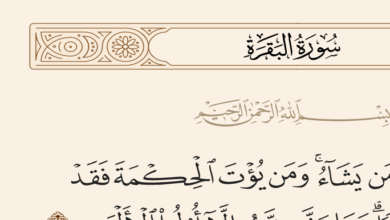 سُورَةُ البَقَرَةِ
بِسْمِ اللَّهِ الرَّحْمَٰنِ الرَّحِيمِ
مَن يَشَآءُۚ وَمَن يُؤْتَ الْحِكْمَةَ فَقَدْ